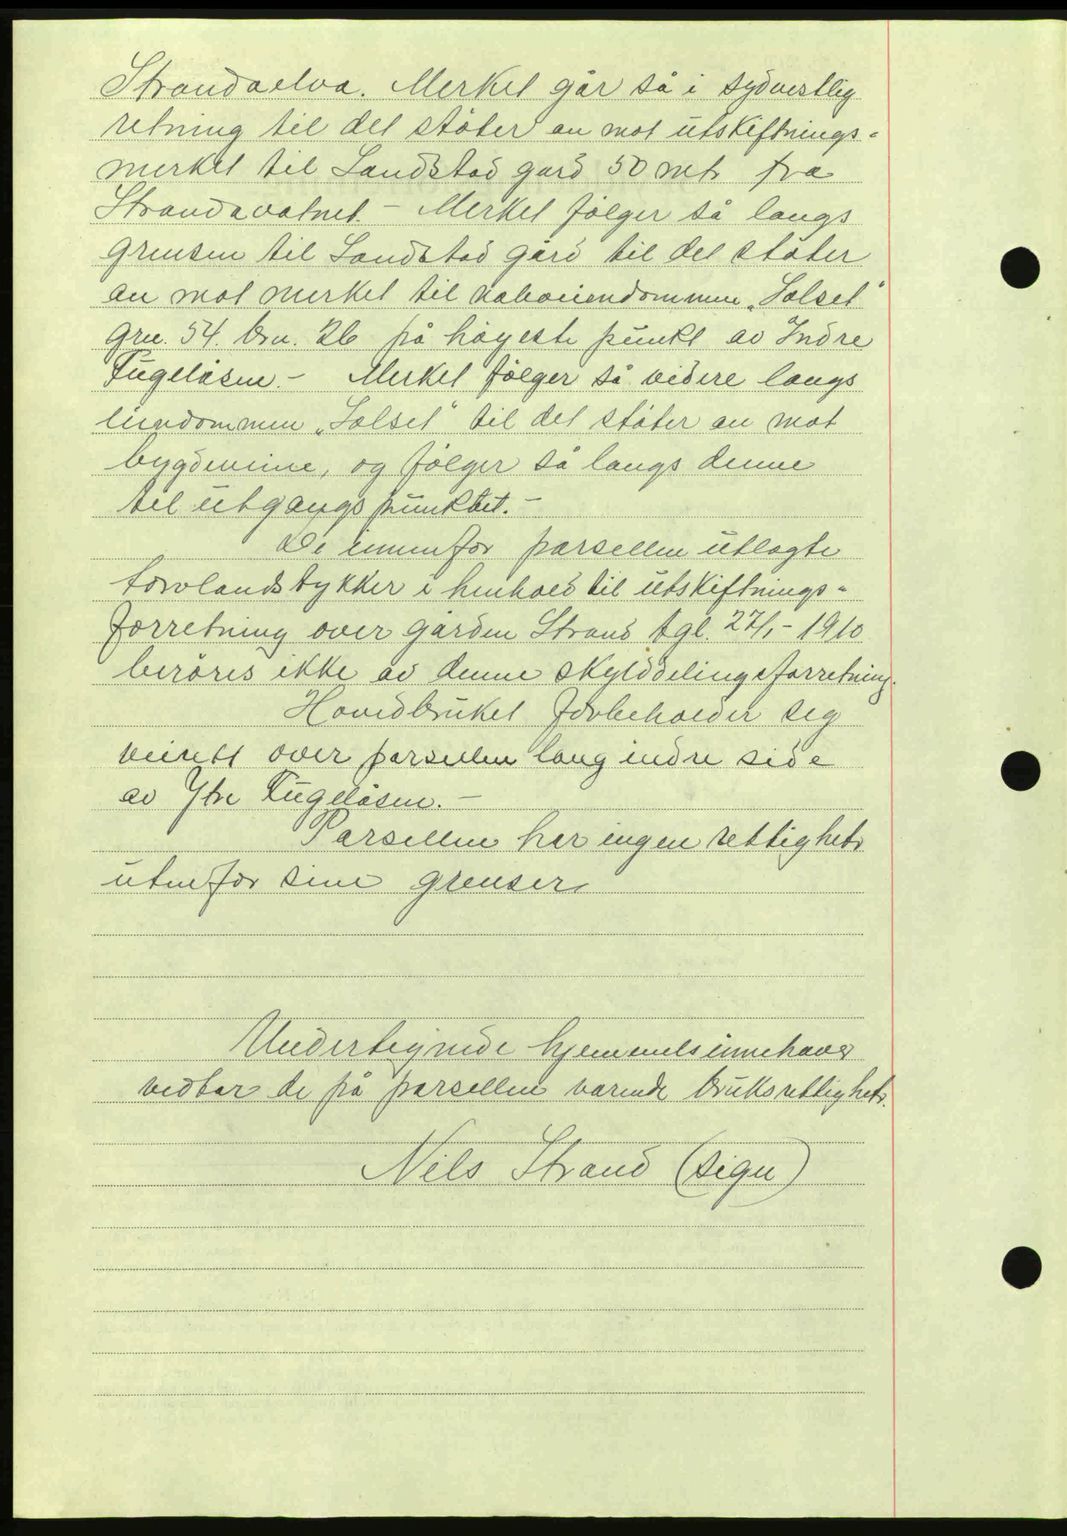 Strandaelva. Merket går så i sydvestlig
retning til det støter an mot utskiftnings-
merket til Sandstad gård 50 mtr fra
Strandavatnet. – Merket følger så langs
grensen til Sandstad gård til det støter
an mot merket til naboeiendommen „Solset"
grn. 54. brn. 26 på høyeste punkt av Indre
Fugelåsen. – Merket følger så videre langs
eiendommen „Solset" til det støter an mot
bygdeveine, og følger så langs denne
til utgangspunktet. –
De innenfor parsellen utlagte
torvlandstykker i henhold til utskiftnings-
forretning over gården Strand tgl. 27/1 - 1910
berøres ikke av denne skylddelingsforretning.
Hovedbruket forbeholder seg
veirett over parsellen lang indre side
av Ytre Fugelåsen. –
Parsellen har ingen rettigheter
utenfor sine grenser
Undertegnede hjemmelsinnehaver
vedtar de på parsellen varende bruksrettigheter.
Nils Strand (sign)